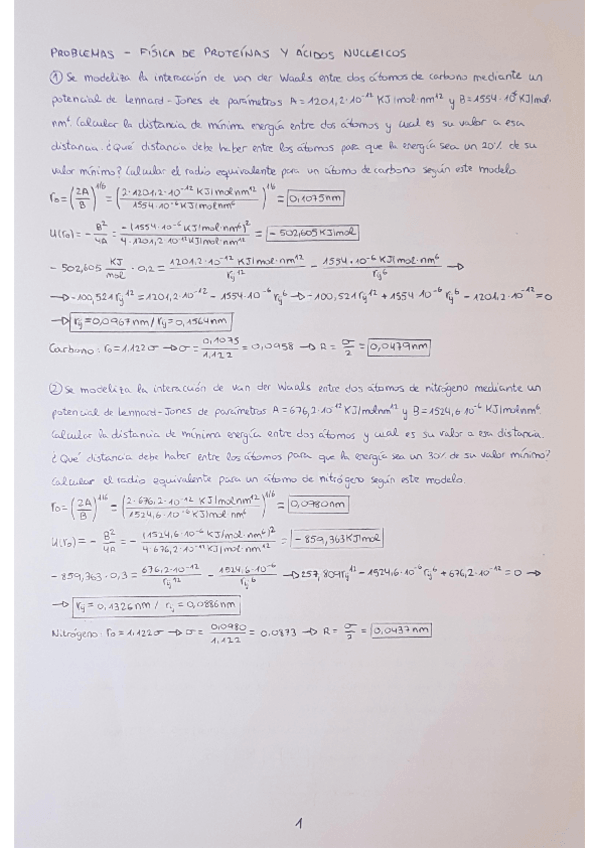 PROBLEMAS - FÍSICA DE PROTEÍNAS Y ÁCIDOS NUCLEICOS
① Se modeliza la interacción de van der Waals entre dos átomos de carbono mediante un
potencial de Lennard-Jones de parámetros A = 1201,2·10⁻¹² KJ/mol·nm¹² y B = 1554·10⁻⁶ KJ/mol·
nm⁶. Calcular la distancia de mínima energía entre dos átomos y cual es su valor a esa
distancia. ¿Qué distancia debe haber entre los átomos para que la energía sea un 20% de su
valor mínimo? Calcular el radio equivalente para un átomo de carbono según este modelo
r₀ = (2A/B)^1/6 = (2·1201,2·10⁻¹² KJ/mol nm¹² / 1554·10⁻⁶ KJ/mol nm⁶)^1/6 = 0,1075nm
U(r₀) = - B²/4A = -(1554·10⁻⁶ KJ/mol·nm⁶)² / 4·1201,2·10⁻¹² KJ/mol·nm¹² = -502,605 KJ/mol
-502,605 KJ/mol · 0,2 = 1201,2·10⁻¹² KJ/mol·nm¹² / rᵢⱼ¹² - 1554·10⁻⁶ KJ/mol·nm⁶ / rᵢⱼ⁶ →
→ -100,521 rᵢⱼ¹² = 1201,2·10⁻¹² - 1554·10⁻⁶ rᵢⱼ⁶ → -100,521 rᵢⱼ¹² + 1554·10⁻⁶ rᵢⱼ⁶ - 1201,2·10⁻¹² = 0
→ rᵢⱼ = 0,0967nm / rᵢⱼ = 0,1564nm
Carbono: r₀ = 1,122σ → σ = 0,1075/1,122 = 0,0958 → R = σ/2 = 0,0479nm
② Se modeliza la interacción de van der Waals entre dos átomos de nitrógeno mediante un
potencial de Lennard-Jones de parámetros A = 676,2·10⁻¹² KJ/mol nm¹² y B = 1524,6·10⁻⁶ KJ/mol nm⁶.
Calcular la distancia de mínima energía entre dos átomos y cual es su valor a esa distancia.
¿Qué distancia debe haber entre los átomos para que la energía sea un 30% de su valor mínimo?
Calcular el radio equivalente para un átomo de nitrógeno según este modelo.
r₀ = (2A/B)^1/6 = (2·676,2·10⁻¹² KJ/mol nm¹² / 1524,6·10⁻⁶ KJ/mol nm⁶)^1/6 = 0,0980nm
U(r₀) = - B²/4A = - (1524,6·10⁻⁶ KJ/mol·nm⁶)² / 4·676,2·10⁻¹² KJ/mol·nm¹² = -859,363 KJ/mol
-859,363·0,3 = 676,2·10⁻¹²/rᵢⱼ¹² - 1524,6·10⁻⁶/rᵢⱼ⁶ → 257,809 rᵢⱼ¹² - 1524,6·10⁻⁶ rᵢⱼ⁶ + 676,2·10⁻¹² = 0 →
→ rᵢⱼ = 0,1326nm / rᵢⱼ = 0,0886nm
Nitrógeno: r₀ = 1,122σ → σ = 0,0980/1,122 = 0,0873 → R = σ/2 = 0,0437nm
1